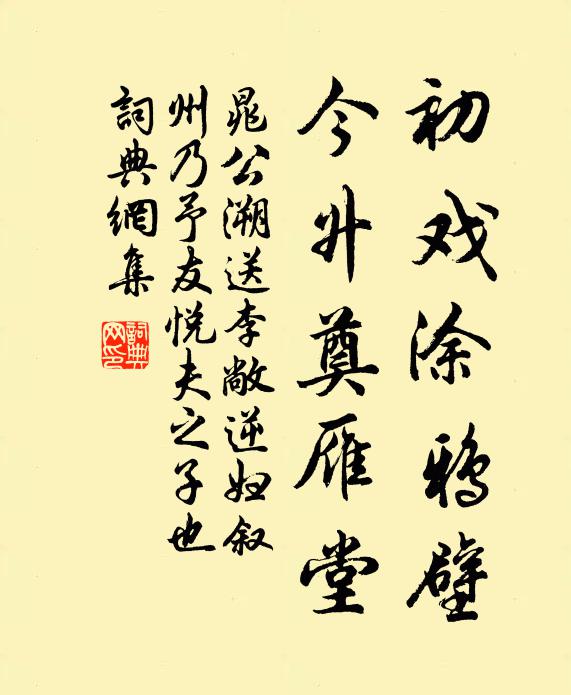 初戏涂鸦壁
今升奠雁堂
晁公溯送李敞逆妇叙
州乃予友悦夫之子也
詞典網集
詞典網印